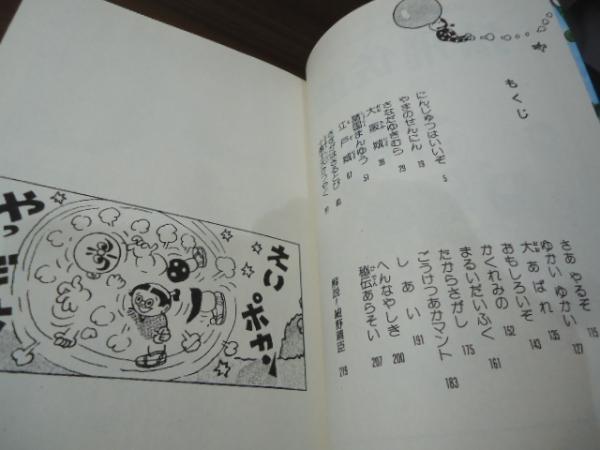 もくじ
にんじゅつはいいぞ 5
やまのせんにん 19
さなだゆきむら 29
大阪城 38
諸国まんゆう 51
江戸城 67
さあ やるぞ 115
ゆかい ゆかい 127
大あばれ 135
おもしろいぞ 143
かくれみの 152
まるいだいふく 161
たからさがし 175
ごうけつあかマント 183
しあい 191
へんなやしき 200
秘伝あらそい 207
219
えい ポカッ